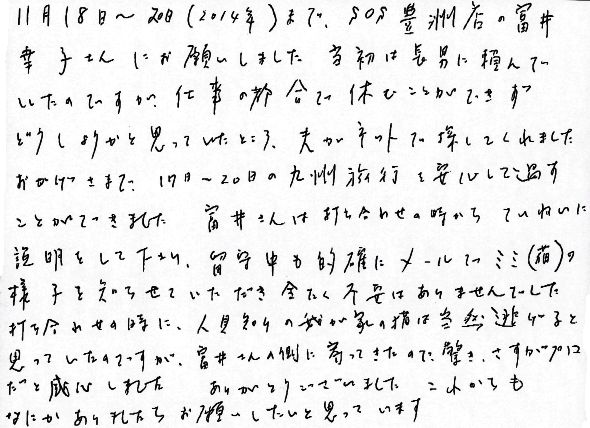 11月18日〜20日(2014年)まで、SOS豊洲店の富井
幸子さんにお願いしました 当初は長男に頼んで
いたのですが、仕事の都合で休むことができず
どうしようかと思っていたところ、夫がネットで探してくれました
おかげさまで、17日〜20日の九州旅行を安心して過す
ことができました 富井さんは打ち合わせの時から ていねいに
説明をして下さり、留守中も的確にメールでミミ(猫)の
様子を知らせていただき全たく不安はありませんでした
打ち合わせの時に、人見知りの我が家の猫は当然逃げると
思っていたのですが、富井さんの側に寄ってきたので驚き、さすがプロ
だと感心しました ありがとうございました これからも
なにかありましたらお願いしたいと思っています